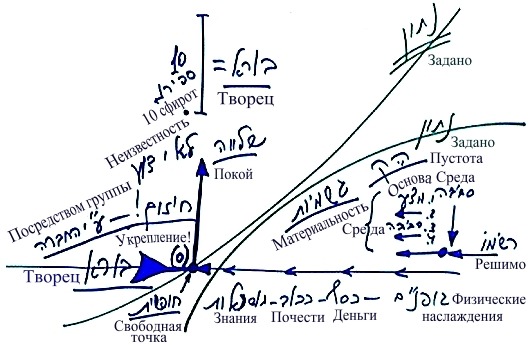 נתון
Задано
10
ספירות
10 сфирот
= בורא
Творец
Неизвестность
לא ידוע
שלווה
Покой
נתון
Задано
ריק
Пустота
Основа
Среда
Посредством группы
חיזוק! – ע"י החברה
Укрепление!
גשמיות
Материальность
Среда
סביבה
1. מצע
2.
3. סביבה
4.
רשימו
Решимо
Творец
בורא
(0)
חופשית
Свободная точка
Знания
כבוד
Почести
כסף
Деньги
גופניים
Физические наслаждения